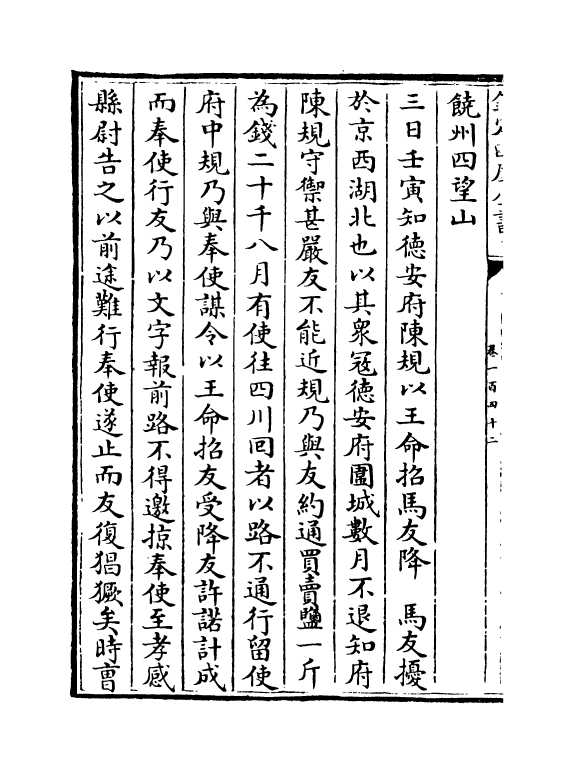 饒州四望山
三日壬寅知徳安府陳規以王命招馬友降　馬友擾
於京西湖北也以其衆冦徳安府圍城數月不退知府
陳規守禦甚嚴友不能近規乃與友約通買賣鹽一斤
為錢二十千八月有使往四川回者以路不通行留使
府中規乃與奉使謀令以王命招友受降友許諾計成
而奉使行友乃以文字報前路不得邀掠奉使至孝感
縣尉告之以前途難行奉使遂止而友復猖獗矣時曺
卷一百四十二